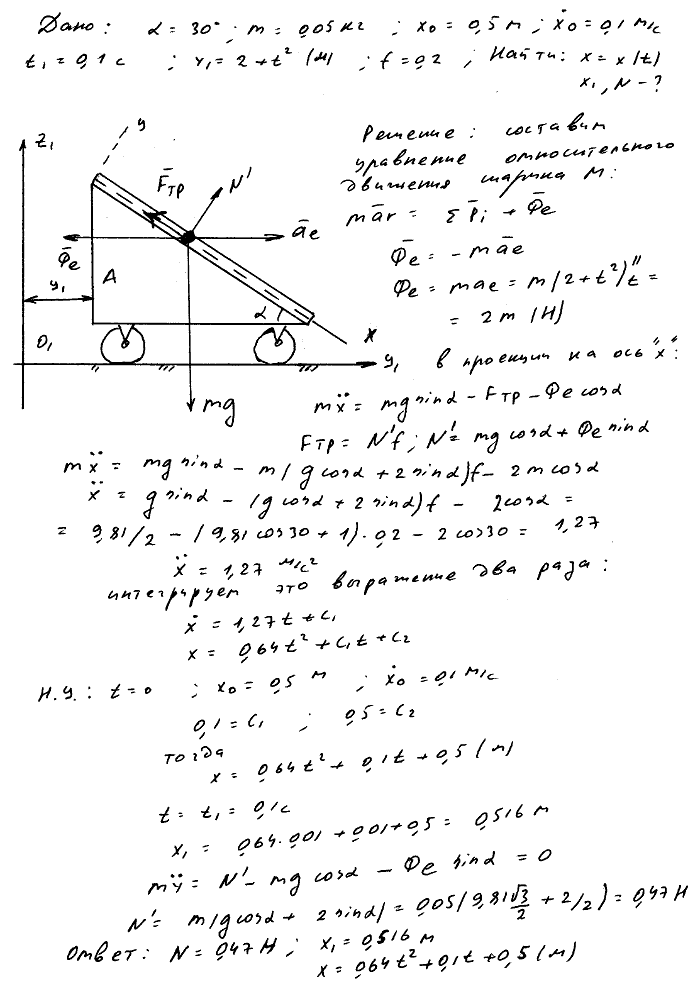 Дано: α = 30°; m = 0,05 кг ; x₀ = 0,5 м ; ẋ₀ = 0,1 м/с
t₁ = 0,1 с ; y₁ = 2 + t² (м) ; f = 0,2 ; Найти: x = x(t)
x₁, N - ?
z₁
y
F̄тр
N'
āe
Φ̄e
y₁
A
α
x
O₁
y₁
mg
Решение: составим
уравнение относительного
движения шарика М:
mār = Σ P̄i + Φ̄e
Φ̄e = -māe
Φe = mae = m(2+t²)″t =
= 2m (Н)
в проекции на ось "x":
mẍ = mg sinα - Fтр - Φe cosα
Fтр = N'f; N' = mg cosα + Φe sinα
mẍ = mg sinα - m(g cosα + 2 sinα)f - 2m cosα
ẍ = g sinα - (g cosα + 2 sinα)f - 2cosα =
= 9,81/2 - (9,81 cos30 + 1)·0,2 - 2 cos30 = 1,27
ẍ = 1,27 м/с²
интегрируем это выражение два раза:
ẋ = 1,27t + C₁
x = 0,64t² + C₁t + C₂
Н.У.: t=0 ; x₀ = 0,5 м ; ẋ₀ = 0,1 м/с
0,1 = C₁ ; 0,5 = C₂
тогда
x = 0,64t² + 0,1t + 0,5 (м)
t = t₁ = 0,1с
x₁ = 0,64·0,01 + 0,01 + 0,5 = 0,516 м
mÿ = N' - mg cosα - Φe sinα = 0
N' = m(g cosα + 2 sinα) = 0,05(9,81√3/2 + 2/2) = 0,47 Н
Ответ: N = 0,47 Н; x₁ = 0,516 м
x = 0,64t² + 0,1t + 0,5 (м)